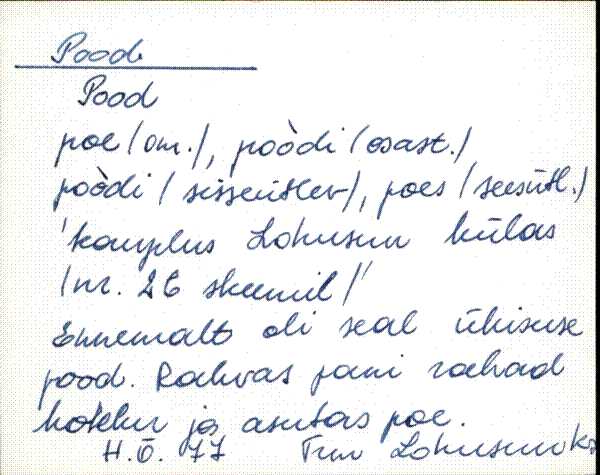 Pood
Pood
poe (om.), poòdi (osast.)
poòdi (sisseütlev), poes (seesütl.)
'kauplus Lohusuu külas
(nr. 26 skeemil)'
Ennemalt oli seal ühisuse
pood. Rahvas pani rahad
kokku ja asutas poe.
H.Õ. 77 Trm Lohusuu